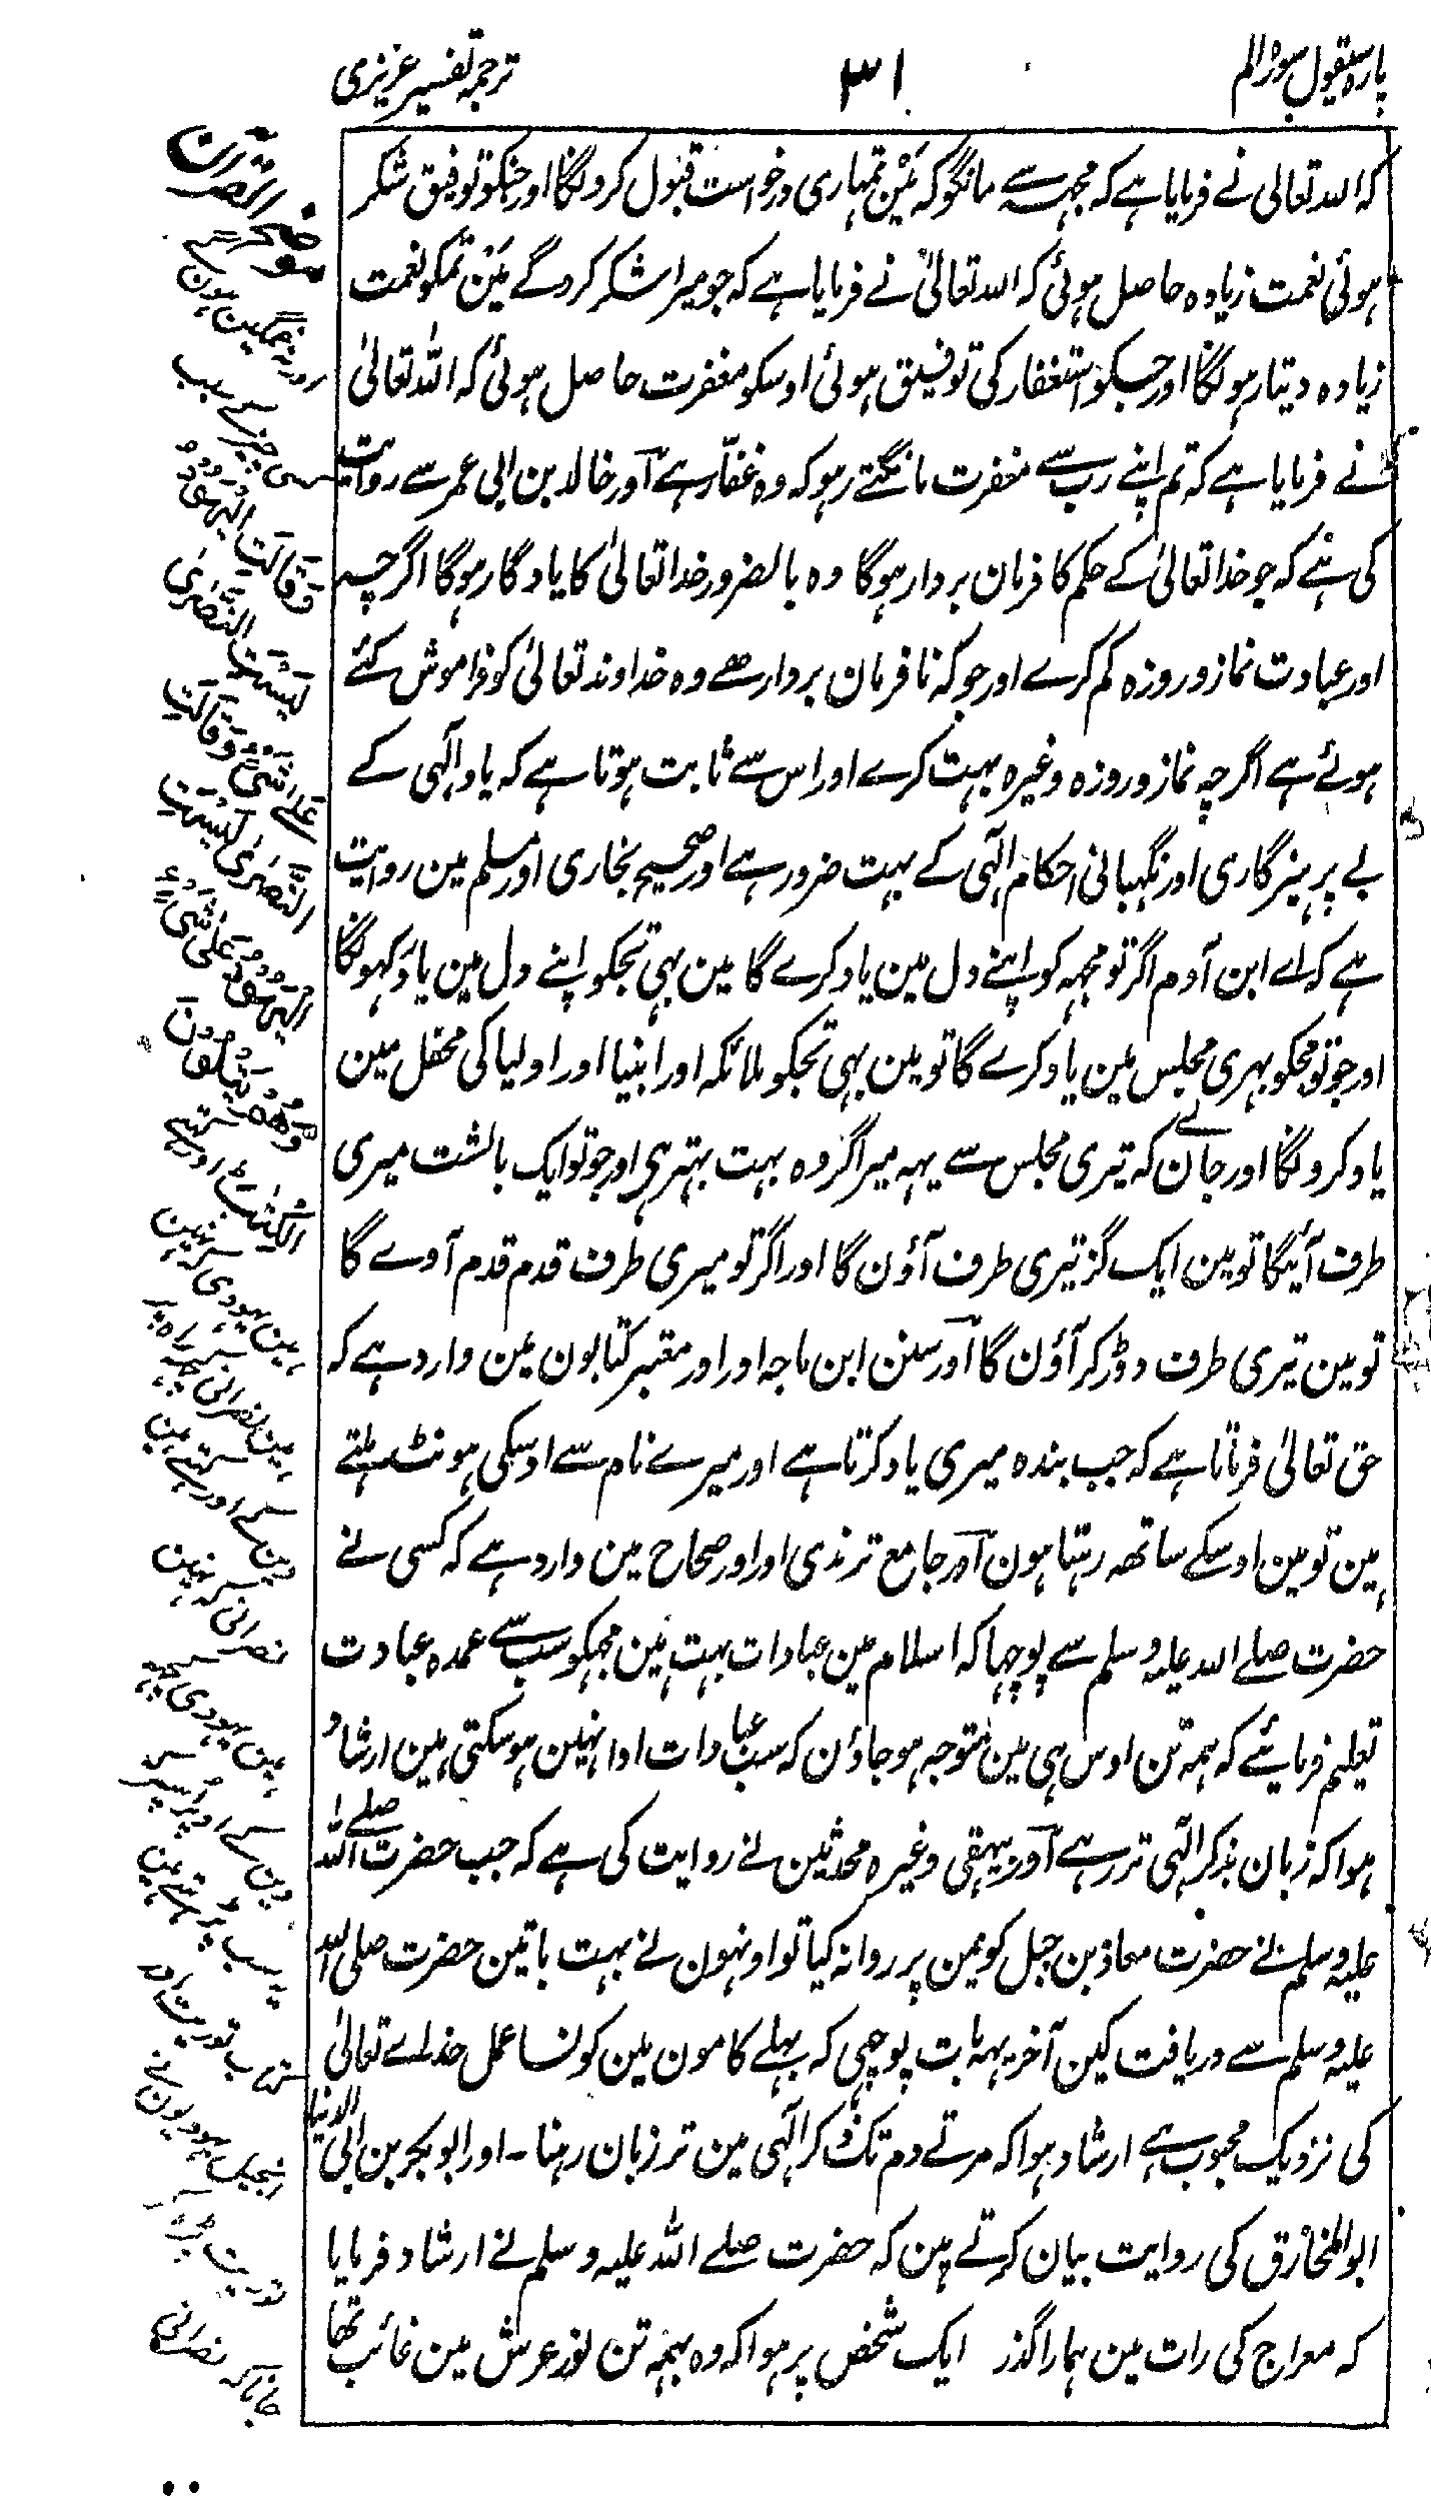 پارہ سیقول سورہ الم
۳۱
ترجمہ تفسیر عزیزی
کہ اللہ تعالی نے فرمایا ہے کہ مجہسے مانگو کہ مَیْن تمہاری درخواست قبول کرونگا اور جنکو توفیق شکر
ہوئی نعمت زیادہ حاصل ہوئی کہ اللہ تعالیٰ نے فرمایا ہے کہ جو میرا شکر کروگے مَیْن تمکو نعمت
زیادہ دیتا رہونگا اور جسکو استغفار کی توفیق ہوئی اوسکو مغفرت حاصل ہوئی کہ اللّٰہ تعالیٰ
نے فرمایا ہے کہ تم اپنے رب سے مغفرت مانگتے رہو کہ وہ غفّار ہے آور خالد بن ابی عمر سے روایت
کی ہے کہ جو خدا تعالیٰ کے حکم کا فرمان بردار ہوگا وہ بالضرور خدا تعالیٰ کا یادگار ہوگا اگرچہ
اور عبادت نماز و روزہ کم کرے اور جو کہ نافرمان بردار ہے وہ خداوند تعالیٰ کو فراموش کئے
ہوئے ہے اگرچہ نماز و روزہ وغیرہ بہت کرے اور اس سے ثابت ہوتا ہے کہ یاد الٓہی کے
لیے پرہیزگاری اور نگہبانی احکام الٓہی کے بہت ضرور ہے اور صحیح بخاری اور مسلم مین روایت
ہے کہ اے ابن آدم اگر تو مجہہ کو اپنے دل مین یاد کرے گا مین بہی تجکو اپنے دل مین یاد رکہونگا
اور جو تو مجکو بہری مجلس مین یاد کرے گا تو مین بہی تجکو ملائکہ اور انبیا اور اولیا کی محفل مین
یاد کرونگا اور جان لے کہ تیری مجلس سے یہہ میرا گروہ بہت بہتر ہی اور جو تو ایک بالشت میری
طرف آئیگا تو مین ایک گز تیری طرف آؤن گا اور اگر تو میری طرف قدم قدم آوے گا
تو مین تیری طرف دوڑ کر آؤن گا آور سنن ابن ماجہ اور اور معتبر کتابون مین وارد ہے کہ
حق تعالیٰ فرماتا ہے کہ جب بندہ میری یاد کرتا ہے اور میرے نام سے اوسکی ہونٹ ہلتے
ہین تو مین اوسکے ساتھہ رہتا ہون آور جامع ترمذی اور اور صحاح مین وارد ہے کہ کسی نے
حضرت صلے اللہ علیہ وسلم سے پوچہا کہ اسلام مین عبادات بہت ہین مجہکو سب سے عمدہ عبادت
تعلیم فرمائیے کہ ہمہ تن اوس ہی مین متوجہ ہو جاؤن کہ سب عبادات ادا نہین ہو سکتی ہین ارشاد
ہوا کہ زبان بذکر الٓہی تر رہے آور بیہقی وغیرہ محدثین نے روایت کی ہے کہ جب حضرت صلے اللّٰہ
علیہ وسلم نے حضرت معاذ بن جبل کو یمن پر روانہ کیا تو اونہون نے بہت باتین حضرت صلی اللہ
علیہ وسلم سے دریافت کین آخر یہہ بات پوچہی کہ پہلے کامون مین کونسا عمل خداے تعالیٰ
کی نزدیک محبوب ہے ارشاد ہوا کہ مرتے دم تک ذکر الٓہی مین تر زبان رہنا۔ اور ابو بکر بن ابی الدنیا
ابو المخارق کی روایت بیان کرتے ہین کہ حضرت صلے اللّٰہ علیہ وسلم نے ارشاد فرمایا
کہ معراج کی رات مین ہمارا گذر ایک شخص پر ہوا کہ وہ ہمہ تن نور عرش مین غائب تھا
موضح القرآن
اور نہ غمگین ہون گے
کسی چیز کے سبب
وَقَالَتِ الْیَہُوْدُ
لَیْسَتِ النَّصٰرٰی
عَلٰی شَیْءٍ وَّقَالَتِ
النَّصٰرٰی لَیْسَتِ
الْیَہُوْدُ عَلٰی شَیْءٍ
وَّہُمْ یَتْلُوْنَ
الْکِتٰبَ اور کہتے
ہین یہودی کہ نہین
ہین نصرانی کچہہ راہ پر
دین کے اور کہتے ہین
نصرانی کہ نہین
ہین یہودی کچہہ
دین کے اوپر
یہ سب پڑہتے ہین
کتاب توریت اور
انجیل یہودیون نے
توریت
جانا کہ نصرانی